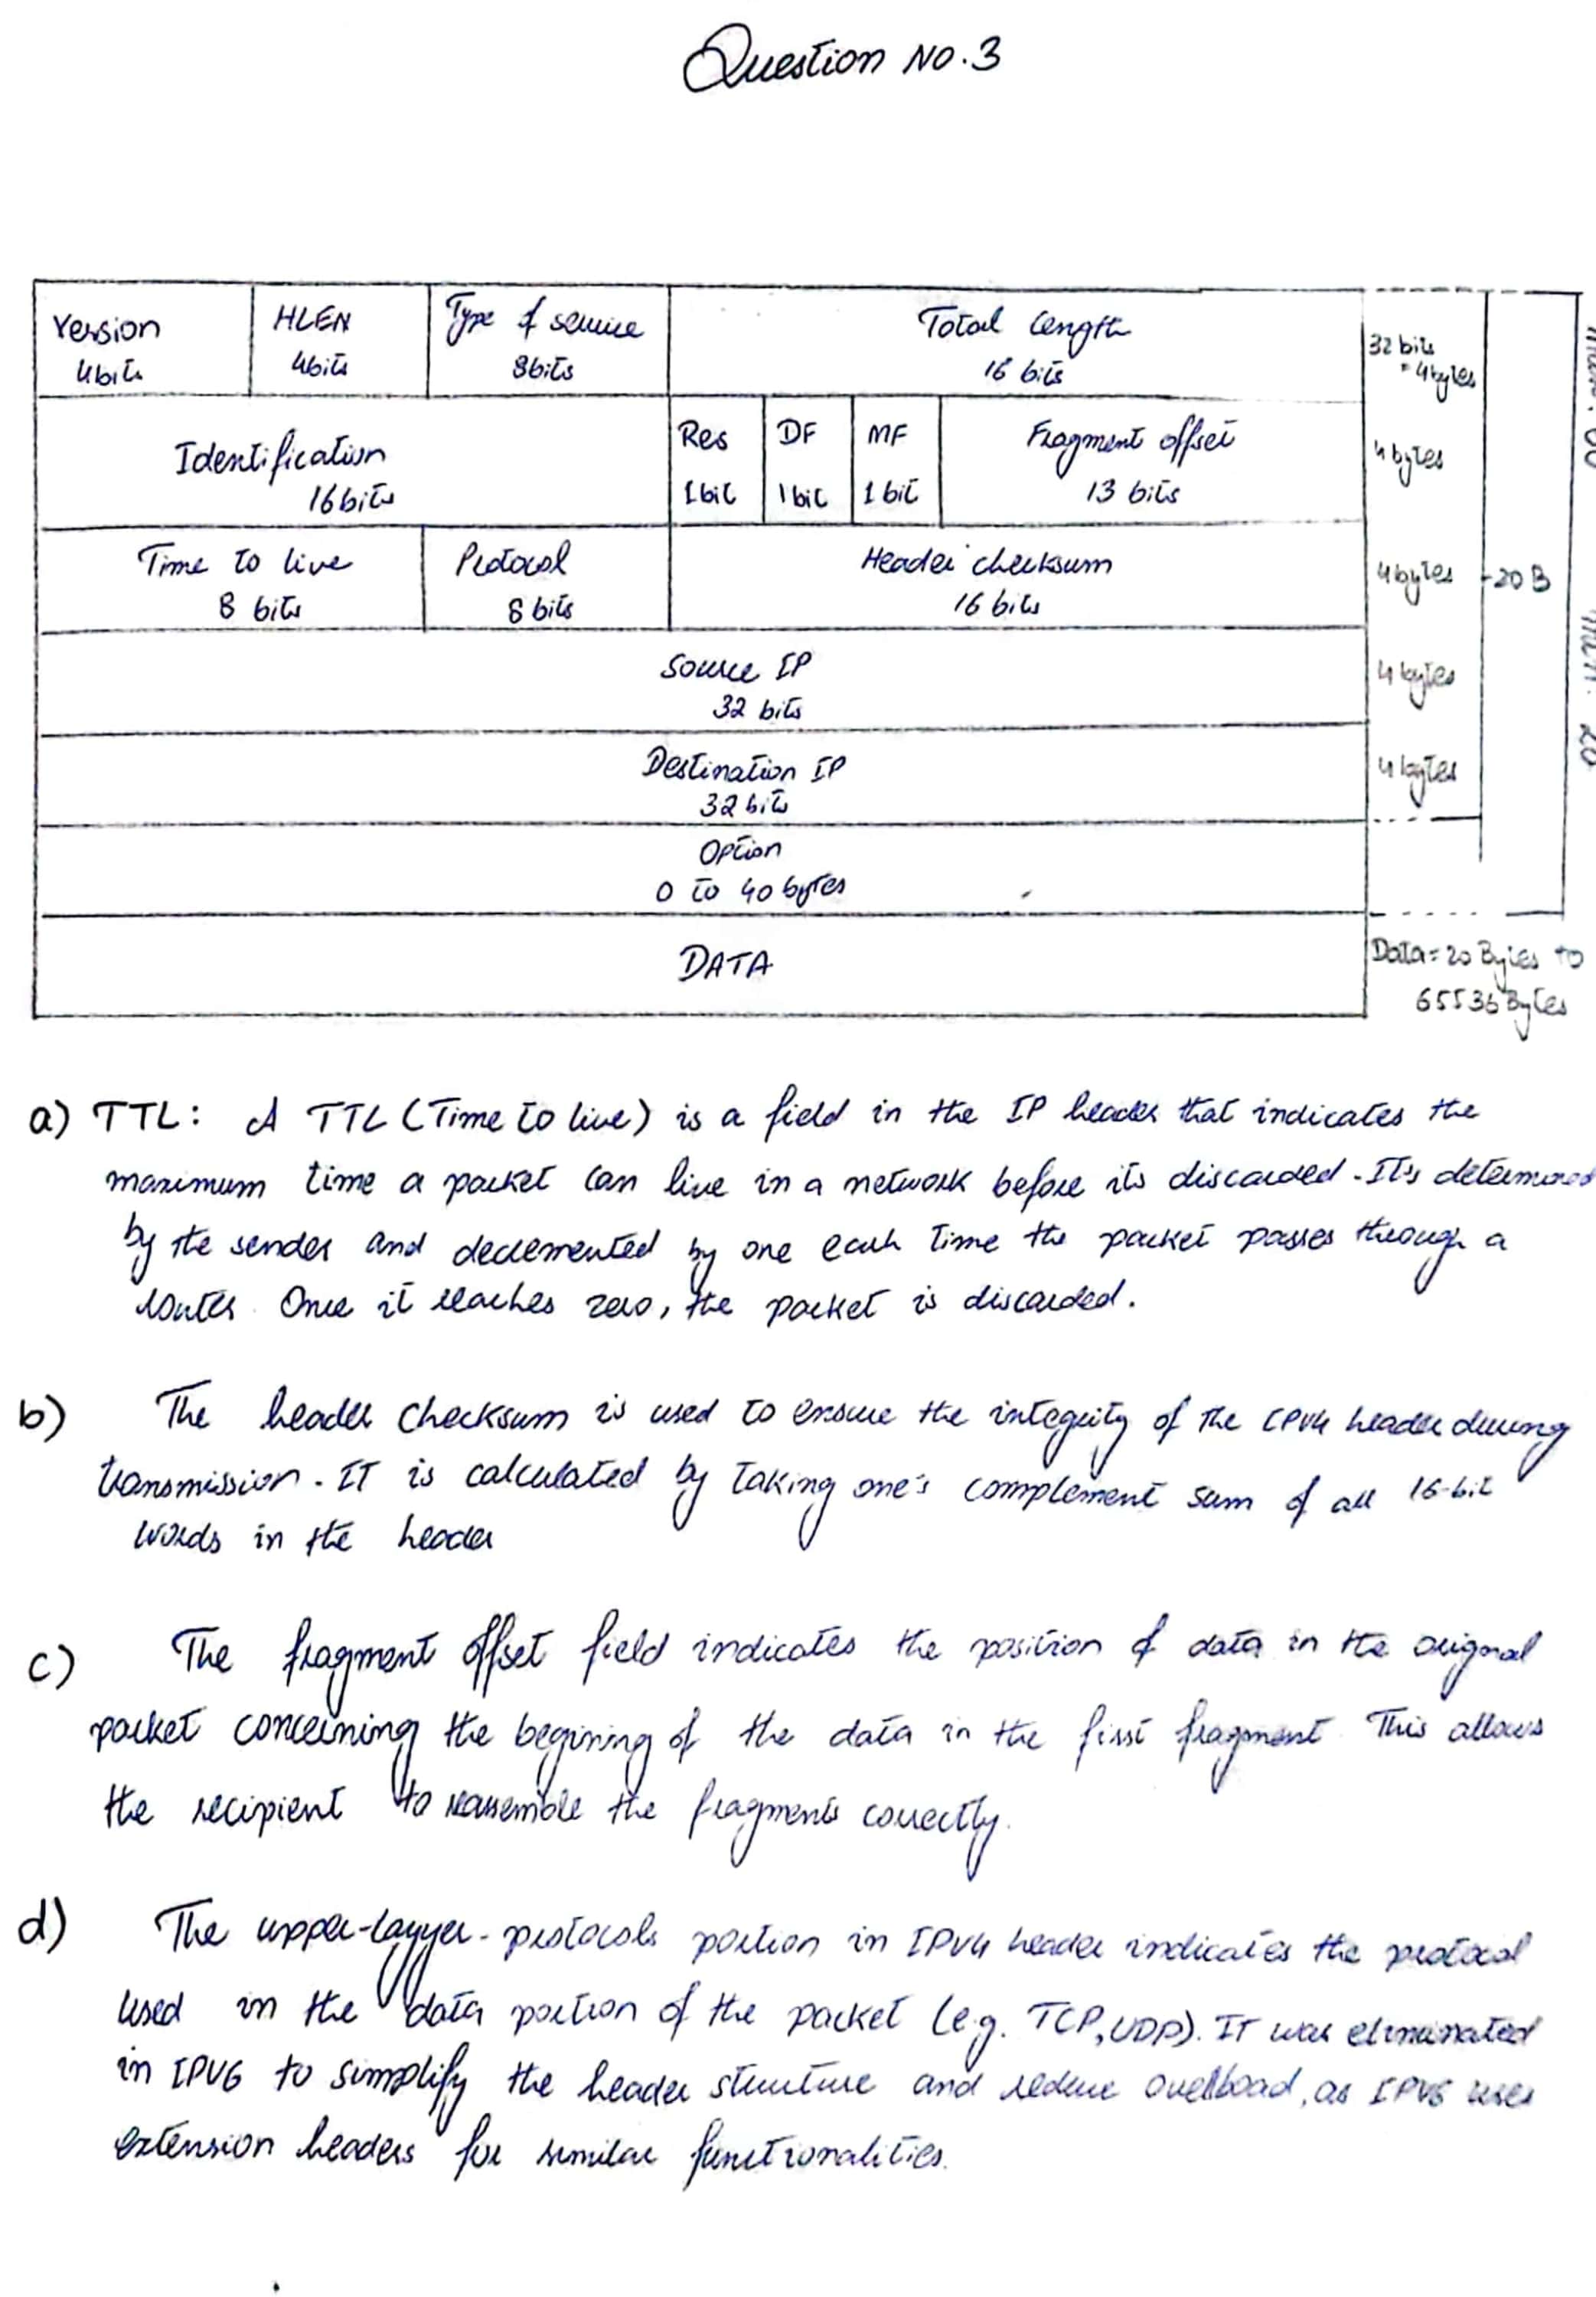 Question NO.3
Version HLEN Type of service Total length
4bits 4bits 8bits 16 bits
32 bits
= 4bytes
Identification Res DF MF Fragment offset
16bits 1bit 1bit 1bit 13 bits
4bytes
Time to live Protocol Header checksum
8 bits 8bits 16 bits
4bytes
20 B
Source IP
32 bits
4bytes
Destination IP
32 bits
4bytes
Option
0 to 40 bytes
DATA
Data = 20 Bytes to
65536 Bytes
a) TTL: A TTL (Time to live) is a field in the IP header that indicates the
maximum time a packet can live in a network before its discarded. It's determined
by the sender and decremented by one each time the packet passes through a
router. Once it reaches zero, the packet is discarded.
b) The header checksum is used to ensure the integrity of the IPV4 header during
transmission. IT is calculated by taking one's complement sum of all 16-bit
words in the header
c) The fragment offset field indicates the position of data in the orignal
packet concerning the begining of the data in the first fragment. This allows
the recipient to reassemble the fragments correctly.
d) The upper-layyer-protocols portion in IPV4 header indicates the protocol
used in the data portion of the packet (e.g. TCP, UDP). IT was eliminated
in IPV6 to simplify the header structure and reduce overload, as IPV6 uses
extension headers for similar functionalities.